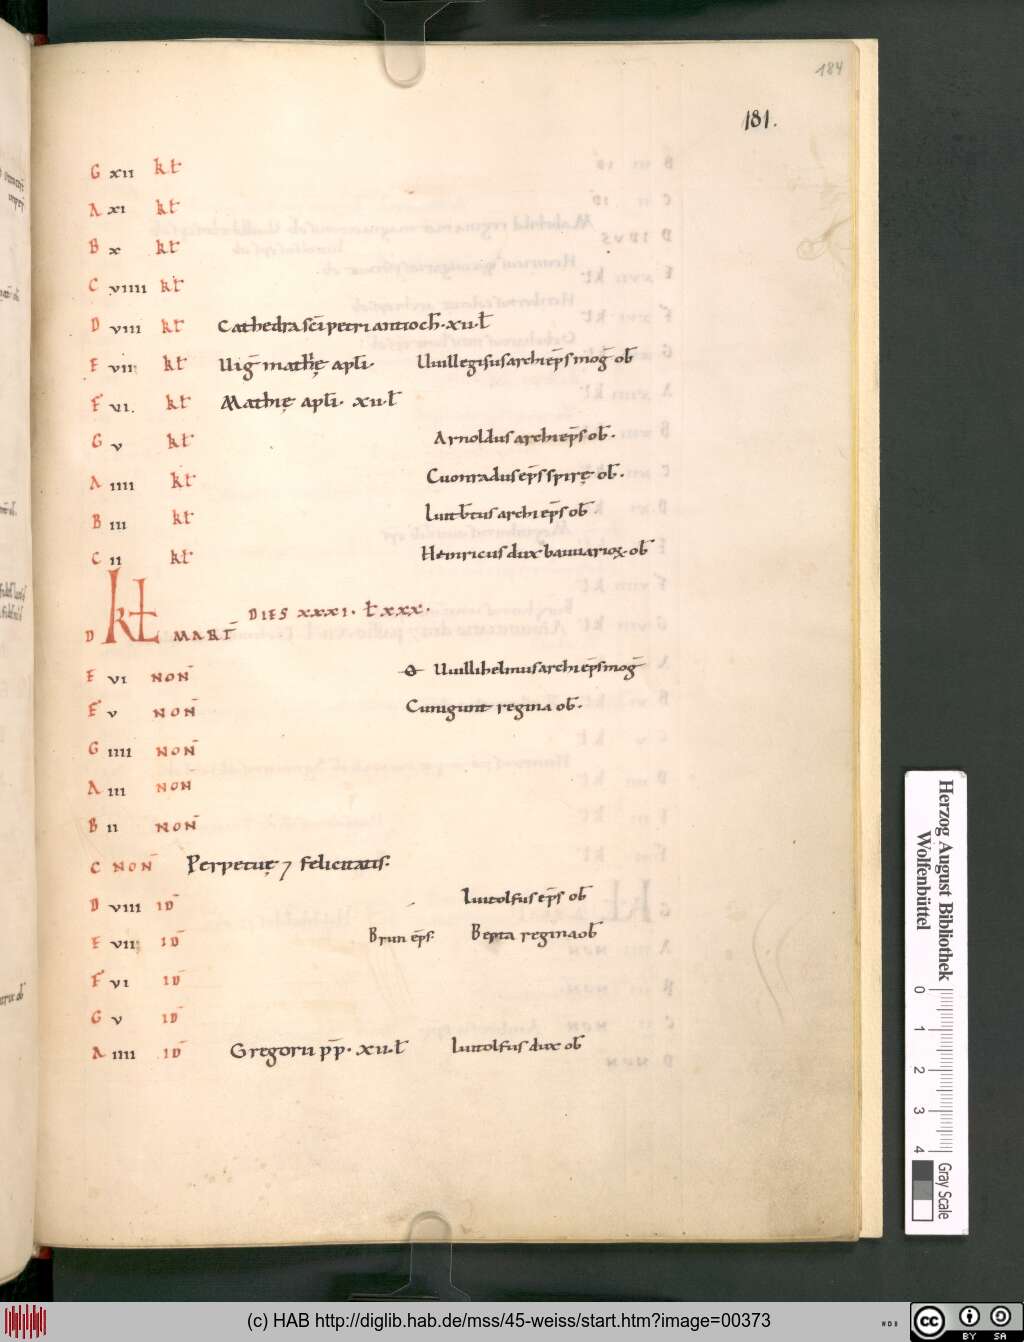 184
181.
G xii kł
A xi kł
B x kł
C viiii kł
D viii kł Cathedra sc̄i petri antioch̄. xii. ł
E vii kł Uiḡ math̄ę apłi. Uuillegisus archiep̄s moḡ ob̄
F vi. kł Mathię apłi. xii. ł
G v kł Arnoldus archiep̄s ob̄.
A iiii kł Cuonradus ep̄s spirę ob̄.
B iii kł Luitb̄tus archiep̄s ob̄.
C ii kł Heinricus dux bauuarioꝝ. ob̄
D kł MART̄ DIES xxxi. ł xxx.
E vi NON̄ Uuillihelmus archiep̄s moḡ
F v NON̄ Cunigunt regina ob̄.
G iiii NON̄
A iii NON̄
B ii NON̄
C NON̄ Perpetuę ⁊ felicitatis.
D viii ID̄ Luitolfus ep̄s ob̄
E vii ID̄ Brun ep̄s. Berta regina ob̄
F vi ID̄
G v ID̄
A iiii ID̄ Gregorii pp̄. xii. ł Luitolfus dux ob̄
Herzog August Bibliothek
Wolfenbüttel
0 1 2 3 4
Gray Scale
(c) HAB http://diglib.hab.de/mss/45-weiss/start.htm?image=00373
WDB
cc BY SA